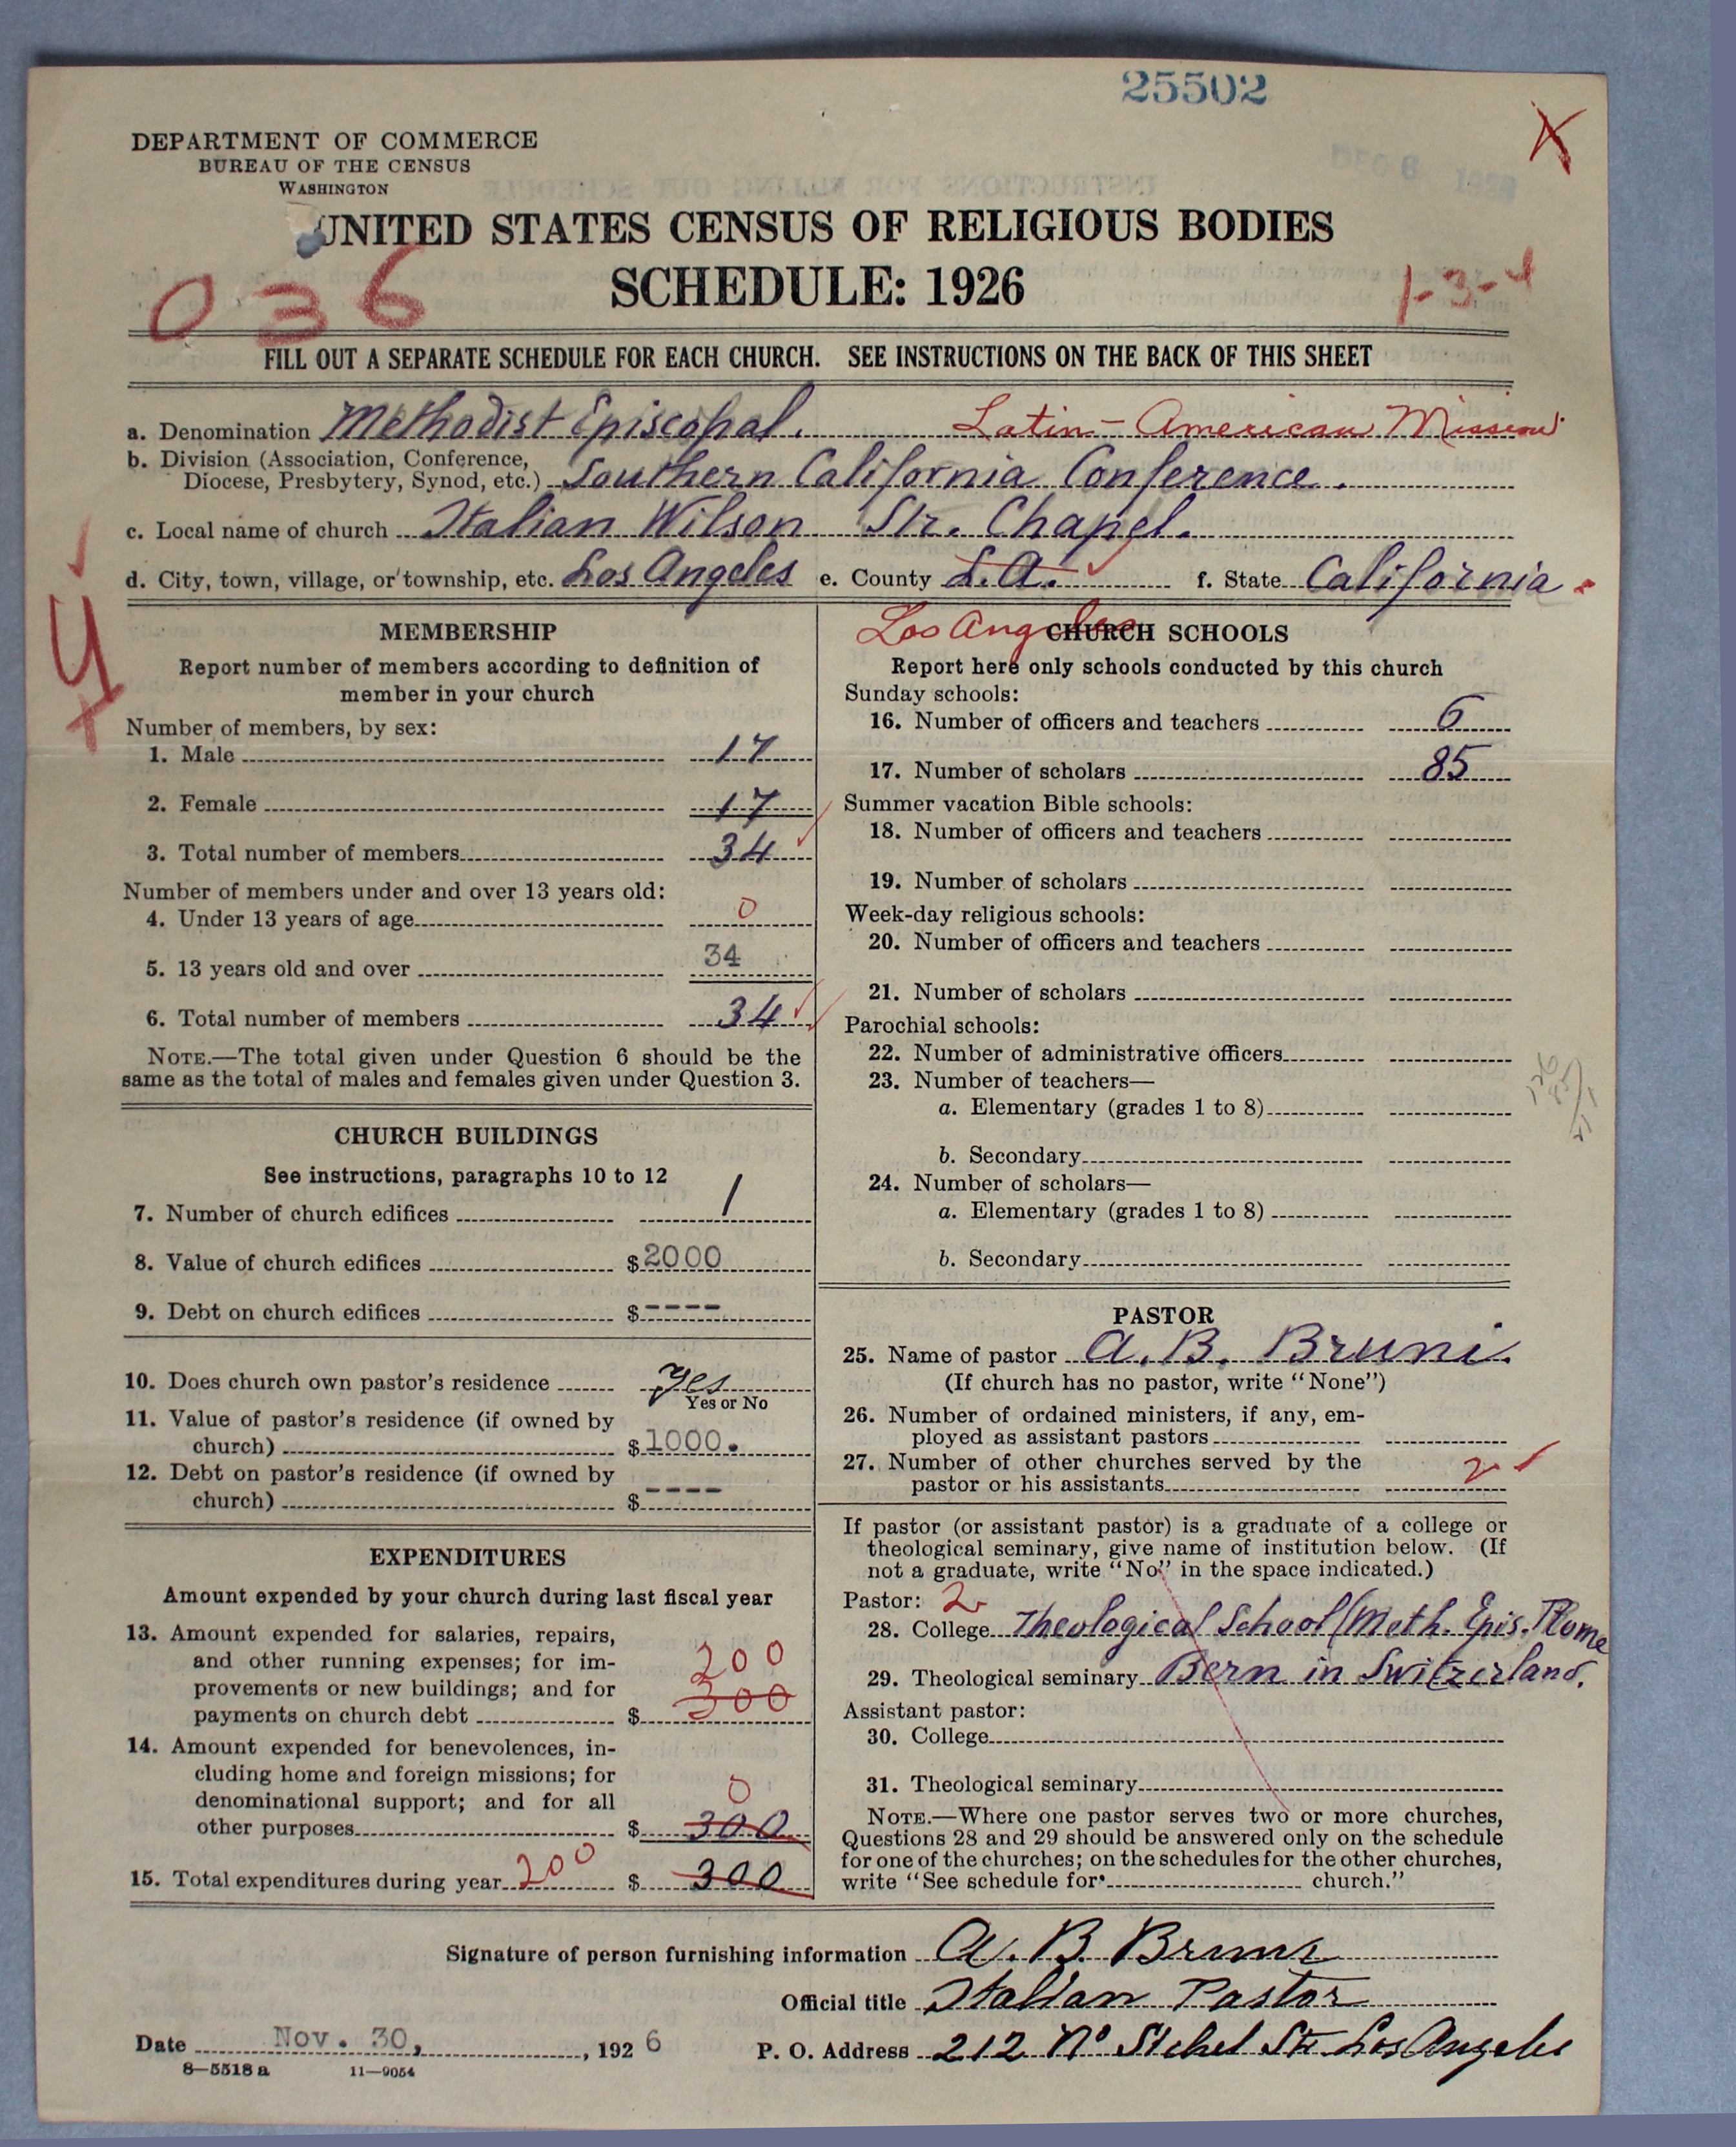 25502
DEPARTMENT OF COMMERCE
BUREAU OF THE CENSUS
WASHINGTON
UNITED STATES CENSUS OF RELIGIOUS BODIES
SCHEDULE: 1926
036
1-3-4
FILL OUT A SEPARATE SCHEDULE FOR EACH CHURCH. SEE INSTRUCTIONS ON THE BACK OF THIS SHEET
a. Denomination Methodist Episcopal. Latin-American Mission
b. Division (Association, Conference,
Diocese, Presbytery, Synod, etc.) Southern California Conference.
c. Local name of church Italian Wilson Str. Chapel.
d. City, town, village, or township, etc. Los Angeles e. County L.A. f. State California
Los Angeles
MEMBERSHIP
Report number of members according to definition of
member in your church
Number of members, by sex:
1. Male 17
2. Female 17
3. Total number of members 34
Number of members under and over 13 years old:
4. Under 13 years of age 0
5. 13 years old and over 34
6. Total number of members 34
NOTE.—The total given under Question 6 should be the
same as the total of males and females given under Question 3.
CHURCH BUILDINGS
See instructions, paragraphs 10 to 12
7. Number of church edifices 1
8. Value of church edifices $2000
9. Debt on church edifices $----
10. Does church own pastor's residence yes
Yes or No
11. Value of pastor's residence (if owned by
church) $1000.
12. Debt on pastor's residence (if owned by
church) $----
EXPENDITURES
Amount expended by your church during last fiscal year
13. Amount expended for salaries, repairs,
and other running expenses; for im-
200
provements or new buildings; and for
300
payments on church debt $
14. Amount expended for benevolences, in-
cluding home and foreign missions; for
0
denominational support; and for all
other purposes $ 300
15. Total expenditures during year 200 $ 300
CHURCH SCHOOLS
Report here only schools conducted by this church
Sunday schools:
16. Number of officers and teachers 6
17. Number of scholars 85
Summer vacation Bible schools:
18. Number of officers and teachers
19. Number of scholars
Week-day religious schools:
20. Number of officers and teachers
21. Number of scholars
Parochial schools:
22. Number of administrative officers
23. Number of teachers—
a. Elementary (grades 1 to 8)
b. Secondary
24. Number of scholars—
a. Elementary (grades 1 to 8)
b. Secondary
PASTOR
25. Name of pastor A. B. Bruni.
(If church has no pastor, write "None")
26. Number of ordained ministers, if any, em-
ployed as assistant pastors
27. Number of other churches served by the
pastor or his assistants 2
If pastor (or assistant pastor) is a graduate of a college or
theological seminary, give name of institution below. (If
not a graduate, write "No" in the space indicated.)
Pastor: 2
28. College Theological School (Meth. Epis. Rome
29. Theological seminary Bern in Switzerland.
Assistant pastor:
30. College
31. Theological seminary
NOTE.—Where one pastor serves two or more churches,
Questions 28 and 29 should be answered only on the schedule
for one of the churches; on the schedules for the other churches,
write "See schedule for church."
Signature of person furnishing information A. B. Bruni
Official title Italian Pastor
Date Nov. 30, , 1926 P. O. Address 212 No Sichel Str. Los Angeles
8—5518 a 11—9054